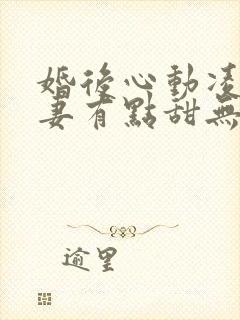 婚後心動凌
妻有點甜無
逾里